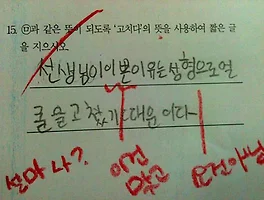 15. ㉠과 같은 뜻이 되도록 '고치다'의 뜻을 사용하여 짧은 글
을 지으시오
선생님이 이쁜이유는성형으로얼
굴을고쳤기때문이다
설마 나? 이건 맞고 요건아님